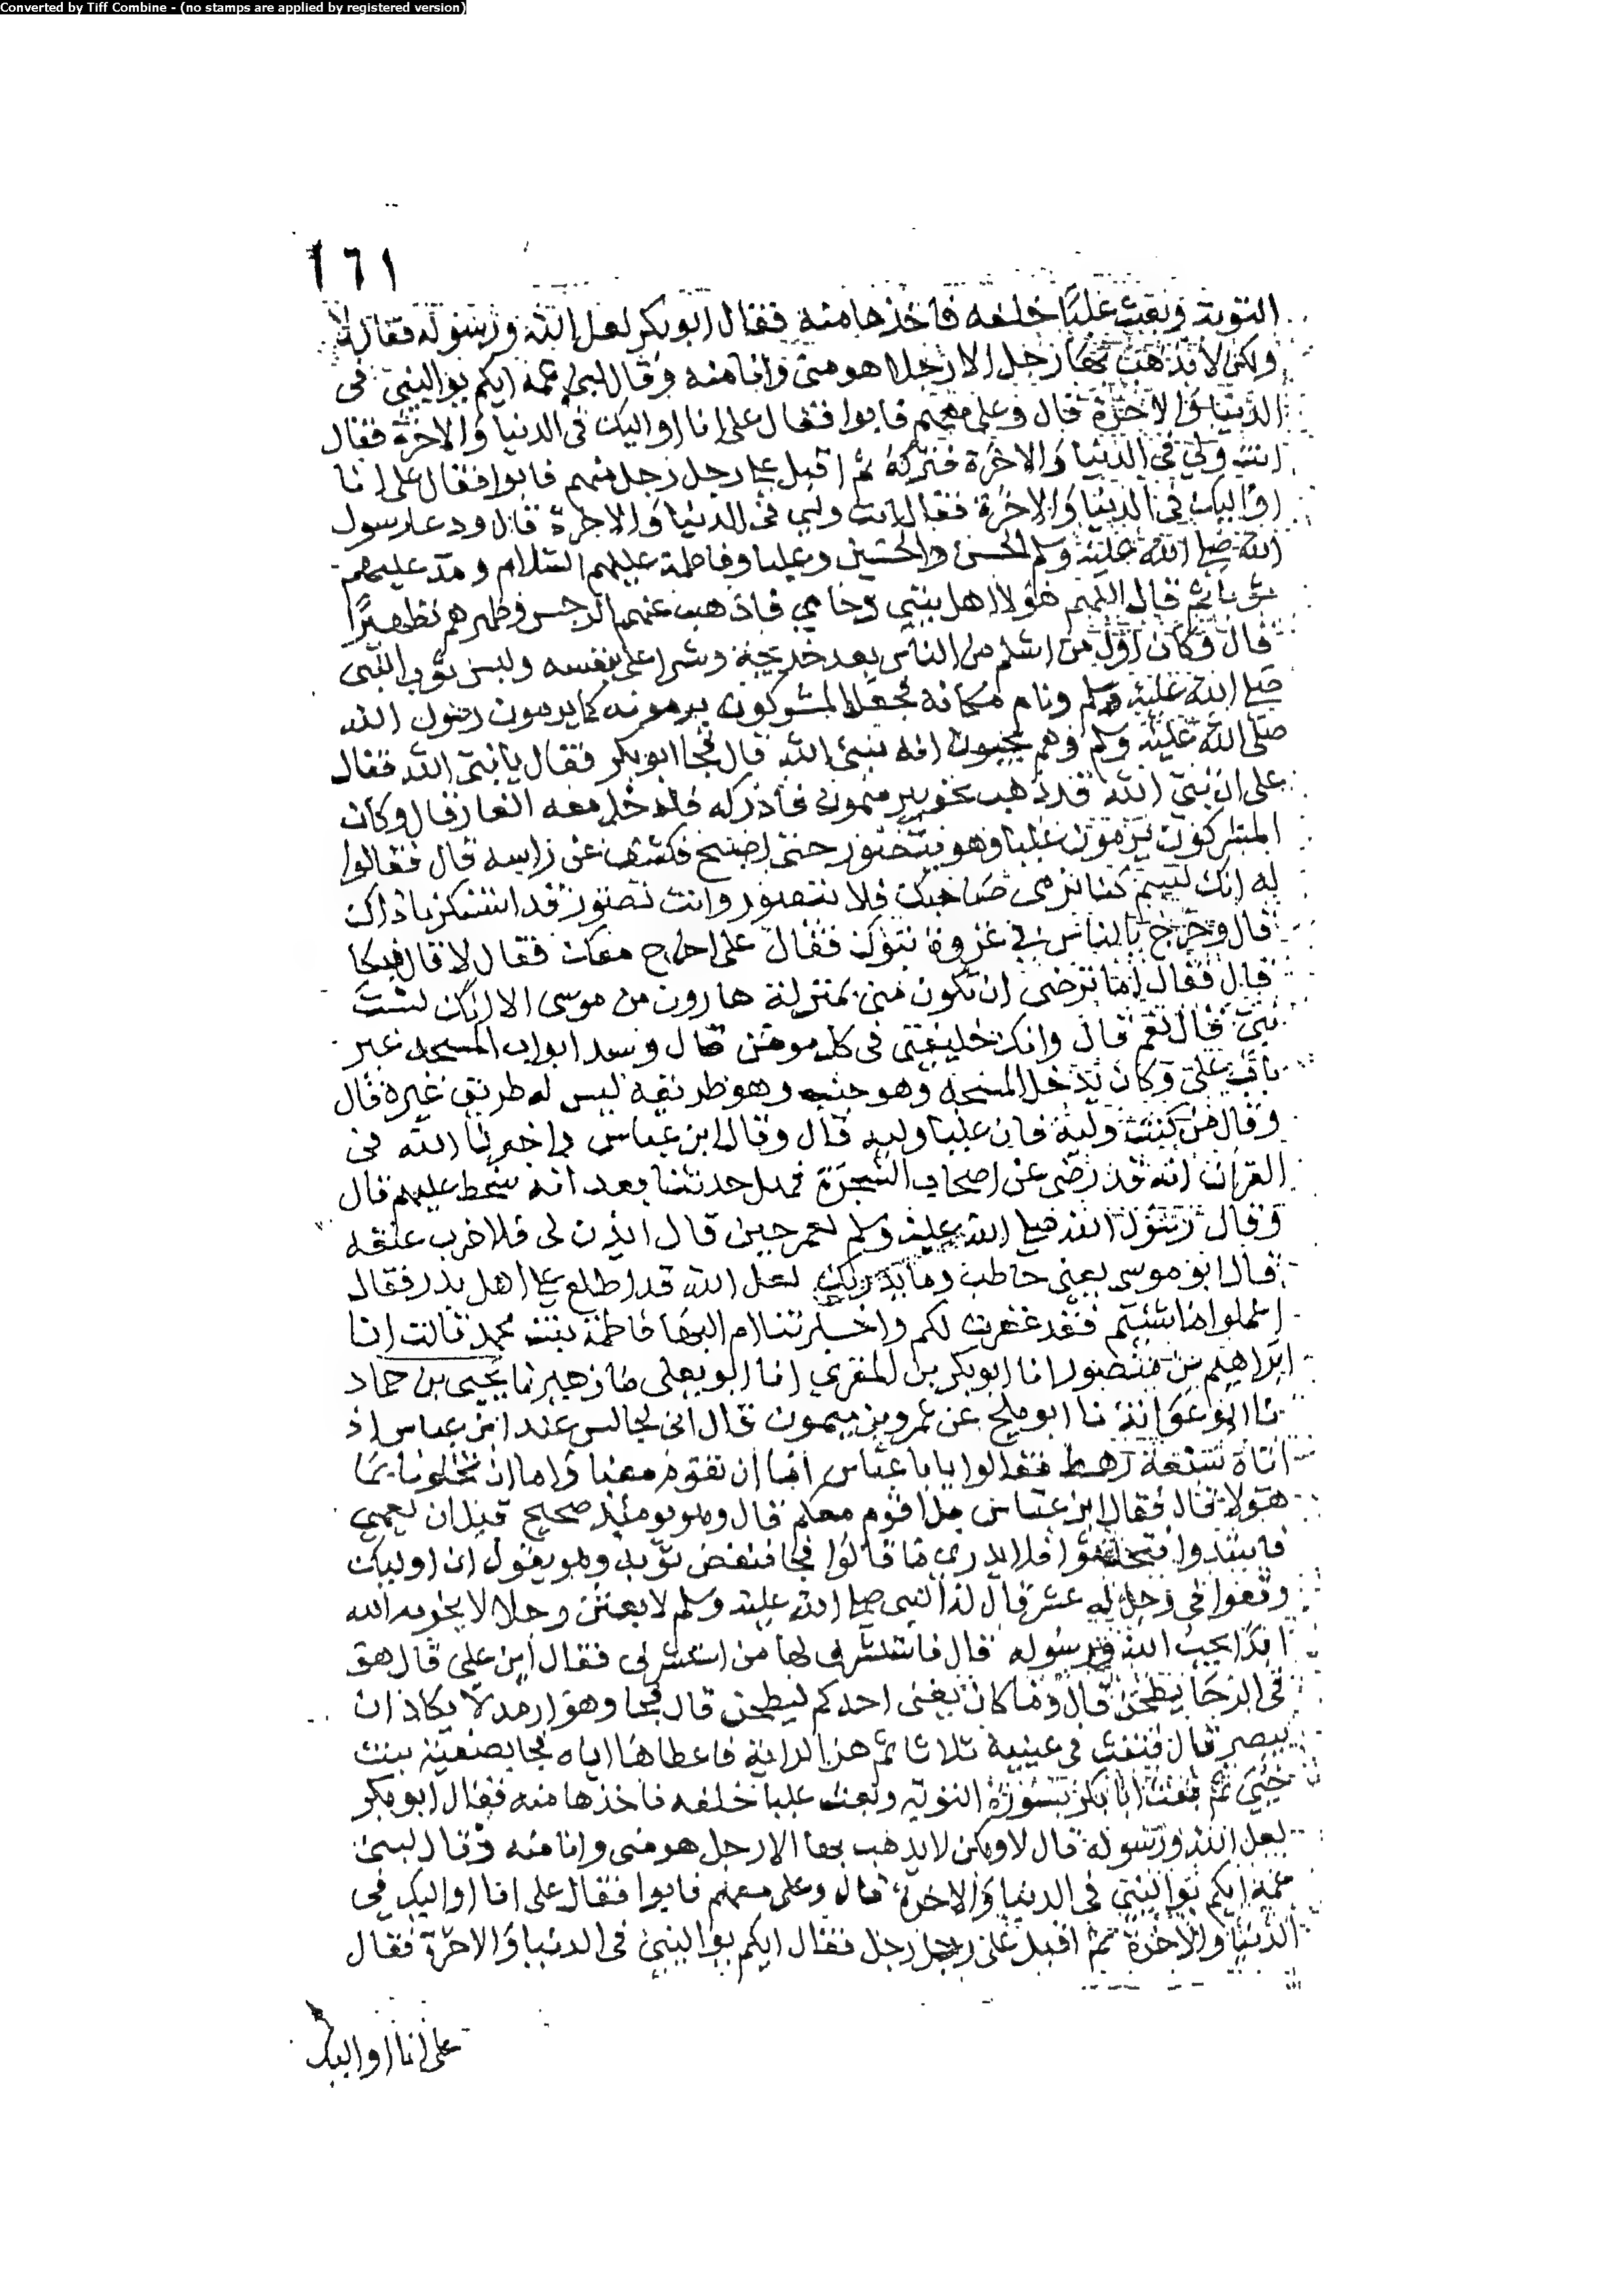 Converted by Tiff Combine - (no stamps are applied by registered version)
١٦١
التوبة وبعث عليا خلفه فاخذها منه فقال ابو بكر لعل الله ورسوله فقال لا
ولكن لا يذهب بها رجل الا رجلا هو مني وانا منه وقال لبني عمه ايكم يواليني في
الدنيا والاخرة قال وعلي معهم فابوا فقال علي انا اواليك في الدنيا والاخرة فقال
انت وليي في الدنيا والاخرة فتركه ثم اقبل على رجل رجل منهم فابوا فقال علي انا
اواليك في الدنيا والاخرة فقال انت وليي في الدنيا والاخرة قال ودعا رسول
الله صلى الله عليه وسلم الحسن والحسين وعليا وفاطمة عليهم السلام ومد عليهم
ثوبا ثم قال اللهم هولا اهل بيتي وحامتي فاذهب عنهم الرجس وطهرهم تطهيرًا
قال وكان اول من اسلم من الناس بعد خديجة وشرا علي بنفسه ولبس ثوب النبي
صلى الله عليه وسلم ونام مكانه فجعل المشركون يرمونه كما يرمون رسول الله
صلى الله عليه وسلم وهم يحسبون انه نبي الله قال فجا ابو بكر فقال يا نبي الله فقال
علي ان نبي الله قد ذهب نحو بير ميمون فادركه فدخل معه الغار قال وكان
المشركون يرمون عليا وهو يتضور حتى اصبح فكشف عن راسه قال فقالوا
له انك لئيم كنا نرمي صاحبك فلا يتضور وانت تضور قد استنكرنا ذاك
قال وخرج بالناس في غزوة تبوك فقال علي اخرج معك فقال لا قال فبكا
قال فقال اما ترضى ان تكون مني بمنزلة هارون من موسى الا انك لست
نبي قال نعم قال وانك خليفتي في كل مومن قال وسد ابواب المسجد غير
باب علي وكان يدخل المسجد وهو جنب وهو طريقه ليس له طريق غيره قال
وقال من كنت وليه فان عليا وليه قال وقال ابن عباس اخبرنا الله في
القران انه قد رضي عن اصحاب الشجرة فهل حدثنا بعد انه سخط عليهم قال
وقال رسول الله صلى الله عليه وسلم لعمر حين قال ائذن لي فلاضرب عنقه
قال ابو موسى يعني حاطب وما يدريك لعل الله قد اطلع على اهل بدر فقال
اعملوا ما شيتم فقد غفرت لكم واخبرتنا ام البها فاطمة بنت محمد قالت انا
ابراهيم بن منصور انا ابو بكر بن المقري انا ابو يعلى نا زهير نا يحيى بن حماد
نا ابو عوانة نا ابو بلج عن عمرو بن ميمون قال اني لجالس عند ابن عباس اذ
اتاه تسعة رهط فقالوا يابا عباس اما ان تقوم معنا واما ان تخلونا بها
هولا قال فقال ابن عباس بل اقوم معكم قال وهو يومئذ صحيح قبل ان يعمى
فابتدوا فتحدثوا فلا يدري ما قالوا فجا فنفض ثوبه وهو يقول ان اوليك
وقعوا في رجل له عشر قال له النبي صلى الله عليه وسلم لابعثن رجلا لا يخزيه الله
ابدا يحب الله ورسوله قال فاستشرف لها من استشرف فقال اين علي قال هو
في الرحا يطحن قال وما كان يغني احدكم ليطحن قال فجا وهو ارمد لا يكاد ان
يبصر قال فنفث في عينيه ثلاثا ثم هز الراية فاعطاها اياه فجا بصفية بنت
حيي ثم بعث ابا بكر بسورة التوبة وبعث عليا خلفه فاخذها منه فقال ابو بكر
لعل الله ورسوله قال لا ولكن لا يذهب بها الا رجل هو مني وانا منه وقال لبني
عمه ايكم يواليني في الدنيا والاخرة قال وعلي معهم فابوا فقال علي انا اواليك في
الدنيا والاخرة ثم اقبل على رجل رجل فقال ايكم يواليني في الدنيا والاخرة فقال
علي انا اواليك